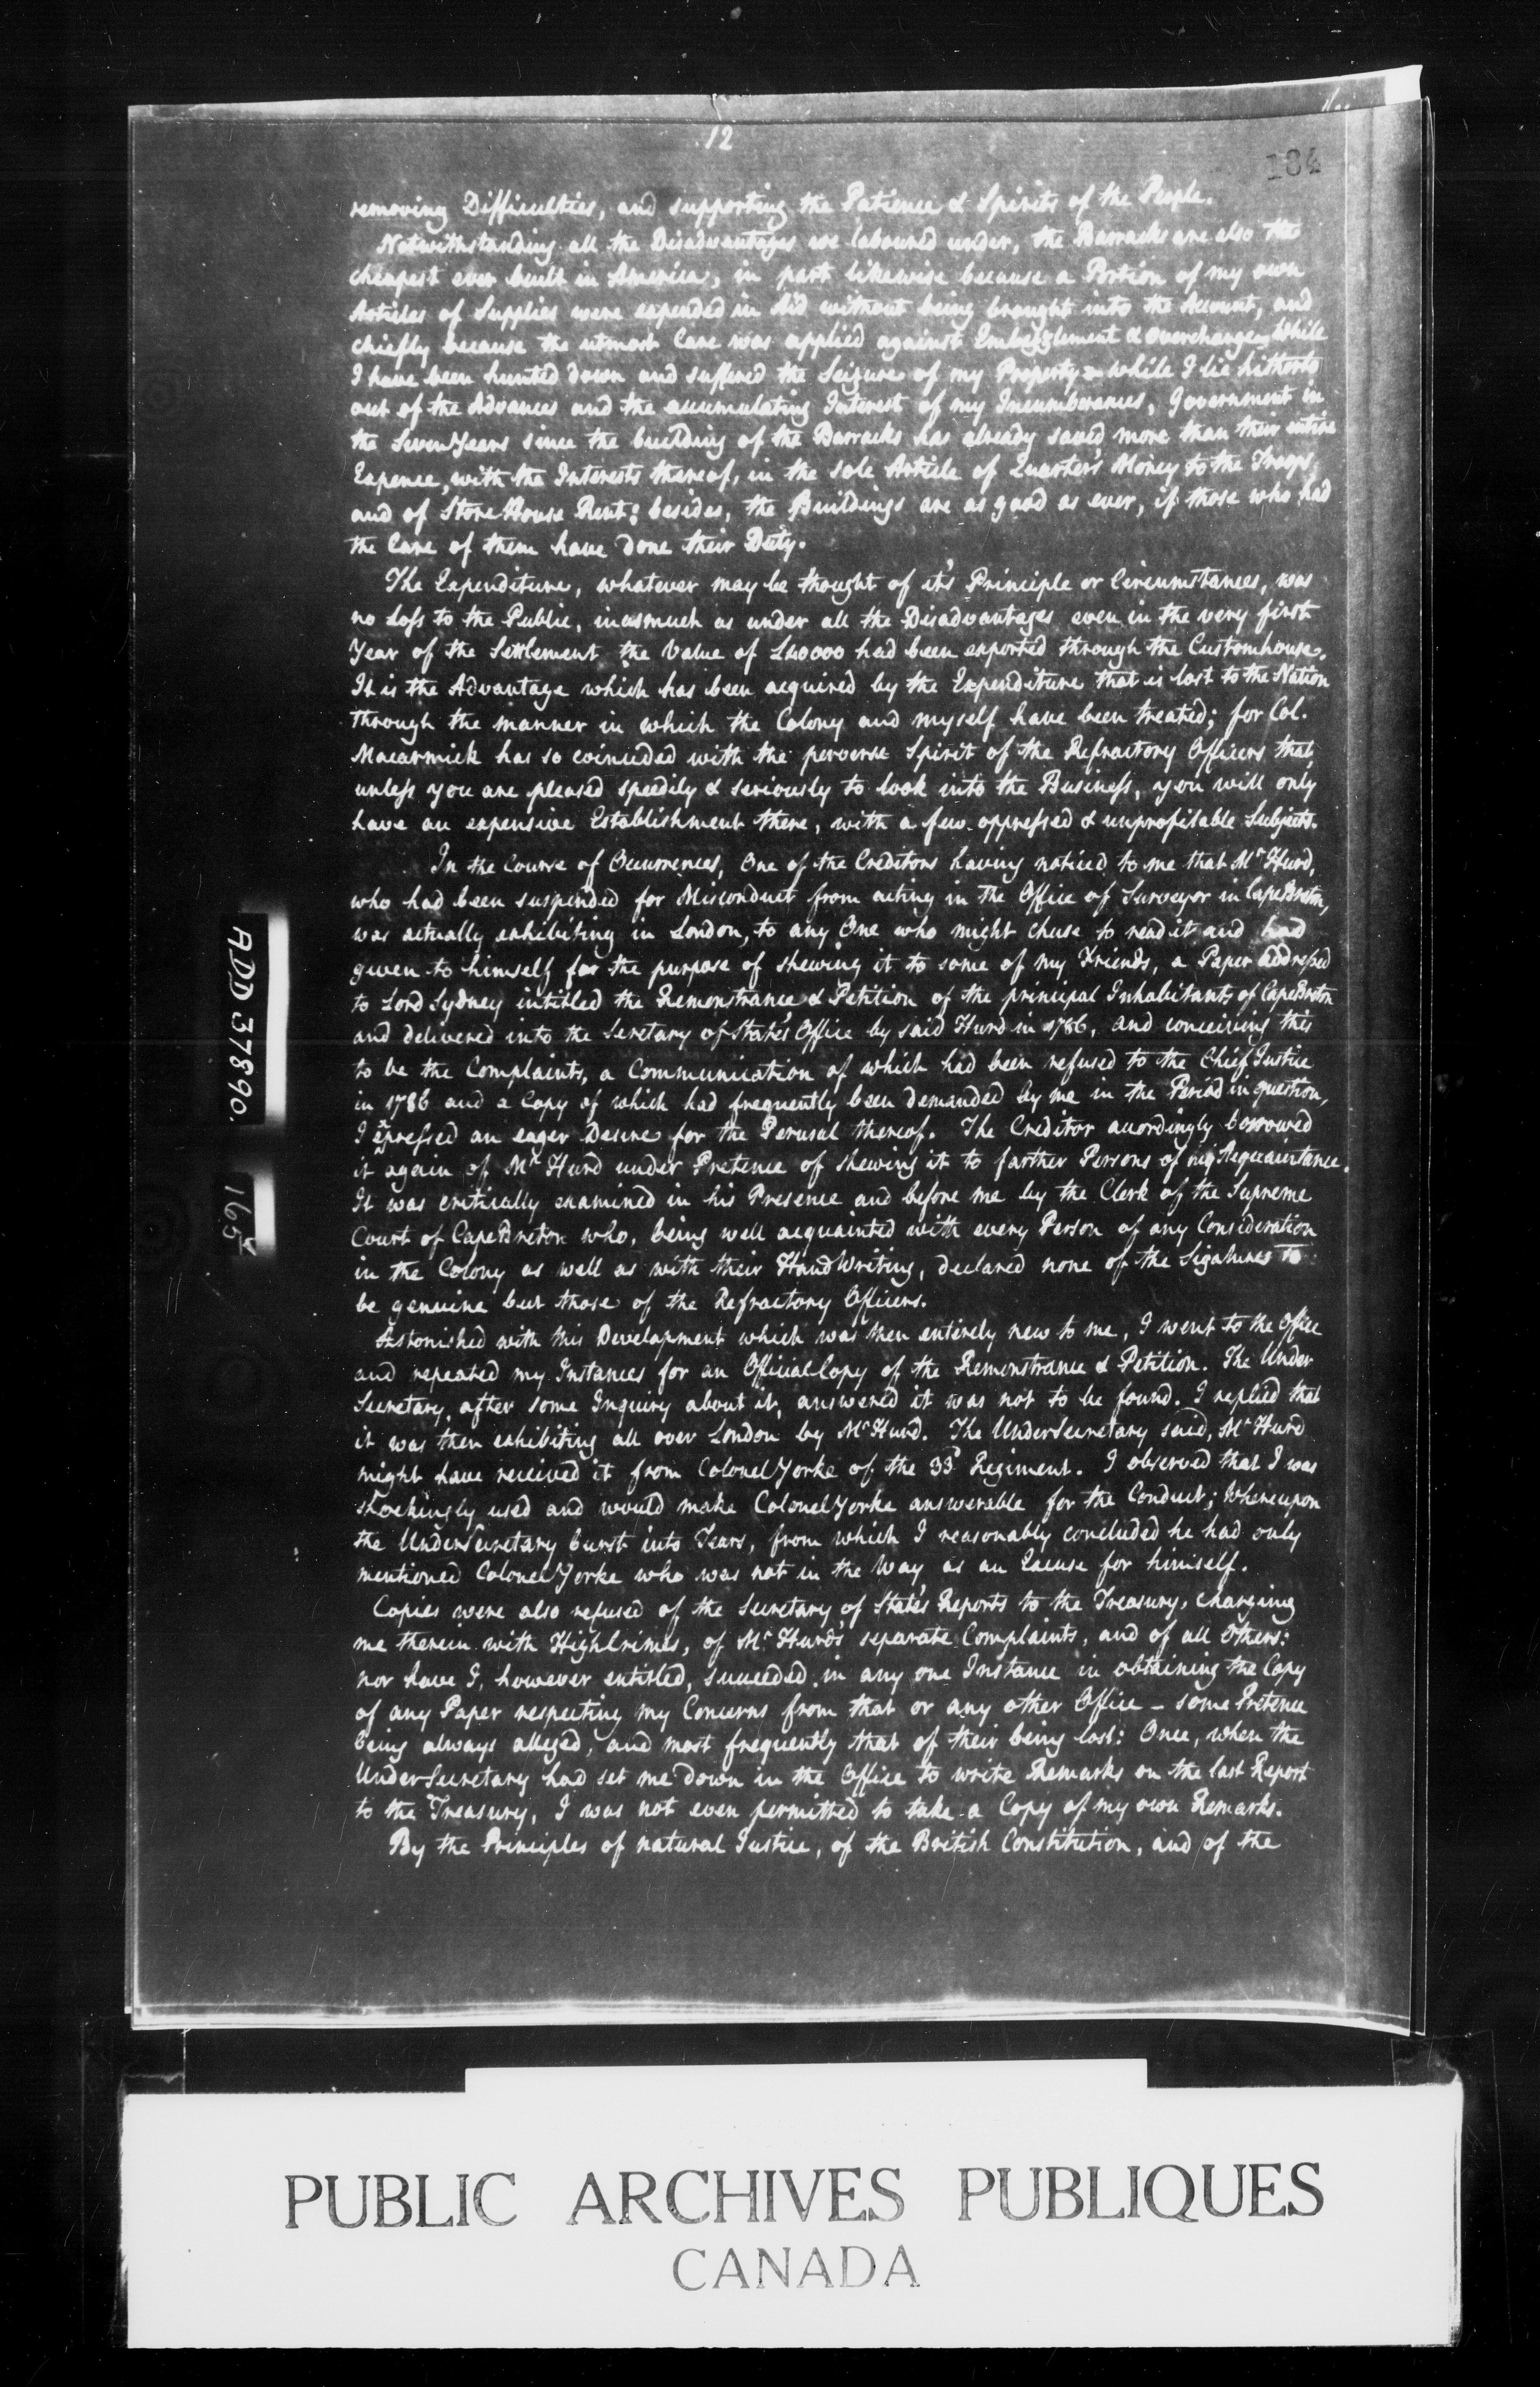 12
184
removing Difficulties, and supporting the Patience & Spirits of the People.
Notwithstanding all the Disadvantages we laboured under, the Barracks are also the
cheapest ever built in America, in part likewise because a Portion of my own
Articles of Supplies were expended in Aid without being brought into the Account, and
chiefly because the utmost Care was applied against Embezzlement & overcharge. While
I have been hunted down and suffered the Seizure of my Property & while I lie hitherto
out of the Advances and the accumulating Interest of my Incumberances, Government in
the Seven Years since the building of the Barracks has already saved more than their entire
Expence, with the Interests thereof, in the sole Article of Quarter's Money to the Troops,
and of Store House Rent: besides, the Buildings are as good as ever, if those who had
the Care of them have done their Duty.
The Expenditure, whatever may be thought of it's Principle or Circumstances, was
no Loss to the Public, inasmuch as under all the Disadvantages even in the very first
Year of the Settlement the Value of £40000 had been exported through the Customhouse.
It is the Advantage which has been acquired by the Expenditure that is lost to the Nation
through the manner in which the Colony and myself have been treated; for Col.
Macarmick has so coincided with the perverse Spirit of the Refractory Officers that,
unless you are pleased speedily & seriously to look into the Business, you will only
have an expensive Establishment there, with a few oppressed & unprofitable Subjects.
In the Course of Occurrences, One of the Creditors having noticed to me that Mr Hurd,
who had been suspended for Misconduct from acting in the Office of Surveyor in Cape Breton,
was actually exhibiting in London, to any One who might chuse to read it and had
given to himself for the purpose of shewing it to some of my Friends, a Paper addressed
to Lord Sydney intitled the Remonstrance & Petition of the principal Inhabitants of Cape Breton
and delivered into the Secretary of State's Office by said Hurd in 1786, and conceiving this
to be the Complaints, a Communication of which had been refused to the Chief Justice
in 1786 and a Copy of which had frequently been demanded by me in the Period in question,
I expressed an eager Desire for the Perusal thereof. The Creditor accordingly borrowed
it again of Mr Hurd under Pretence of shewing it to farther Persons of my Acquaintance.
It was critically examined in his Presence and before me by the Clerk of the Supreme
Court of Cape Breton who, being well acquainted with every Person of any Consideration
in the Colony as well as with their Hand Writing, declared none of the Signatures to
be genuine but those of the Refractory Officers.
Astonished with this Development which was then entirely new to me, I went to the Office
and repeated my Instances for an Official Copy of the Remonstrance & Petition. The Under
Secretary, after some Inquiry about it, answered it was not to be found. I replied that
it was then exhibiting all over London by Mr Hurd. The Under Secretary said, Mr Hurd
might have received it from Colonel Yorke of the 33d Regiment. I observed that I was
shockingly used and would make Colonel Yorke answerable for the Conduct; Whereupon
the Under Secretary burst into Tears, from which I reasonably concluded he had only
mentioned Colonel Yorke who was not in the Way, as an Excuse for himself.
Copies were also refused of the Secretary of State's Reports to the Treasury, charging
me therein with High Crimes, of Mr Hurd's separate Complaints, and of all Others:
nor have I, however entitled, succeeded in any one Instance in obtaining the Copy
of any Paper respecting my Concerns from that or any other Office – some Pretence
being always alleged, and most frequently that of their being lost: Once, when the
Under Secretary had set me down in the Office to write Remarks on the last Report
to the Treasury, I was not even permitted to take a Copy of my own Remarks.
By the Principles of natural Justice, of the British Constitution, and of the
ADD 37890.
165
PUBLIC ARCHIVES PUBLIQUES
CANADA